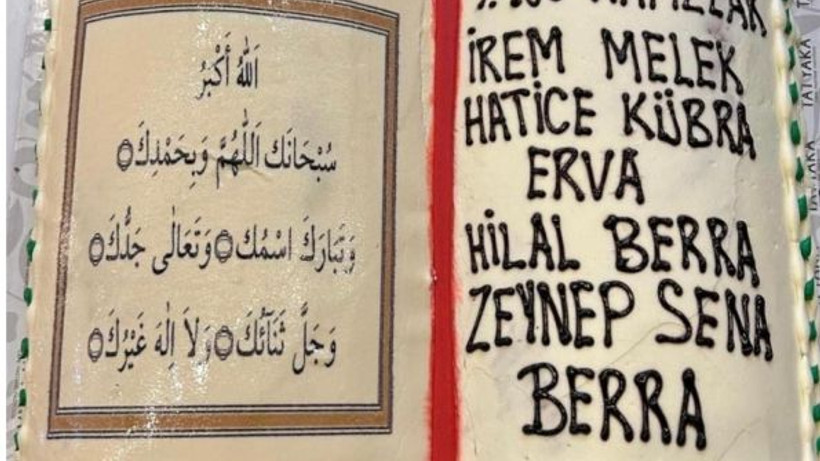 اَللّٰهُ أَكْبَرُ
سُبْحَانَكَ اَللّٰهُمَّ وَبِحَمْدِكَ
وَتَبَارَكَ اسْمُكَ وَتَعَالٰى جَدُّكَ
وَجَلَّ ثَنَآئُكَ وَلَا اِلٰهَ غَيْرُكَ
İREM MELEK
HATİCE KÜBRA
ERVA
HİLAL BERRA
ZEYNEP SENA
BERRA
TATYAKA